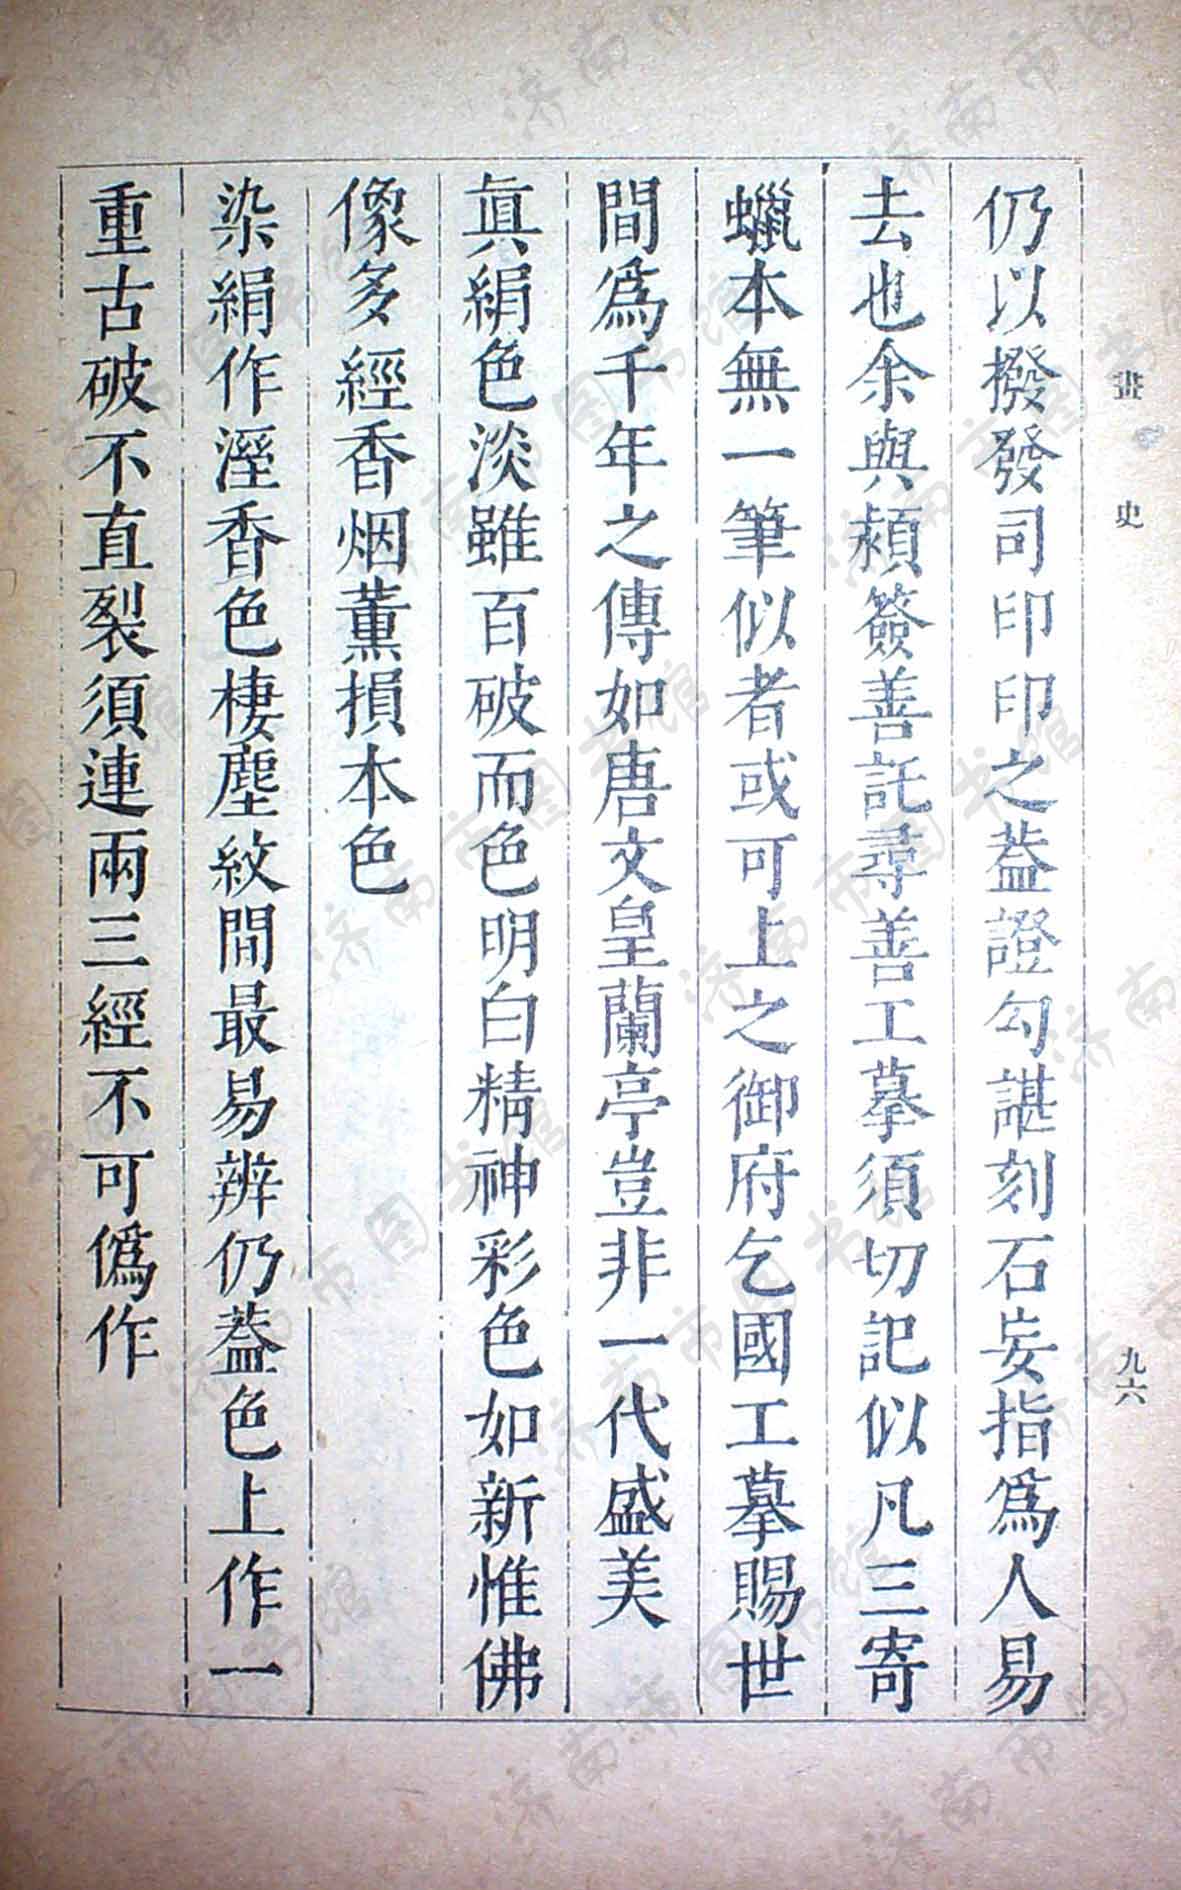 畫史
九六
仍以撥發司印印之葢證勾諶刻石妄指爲人易
去也余與頳簽善託尋善工摹須切記似凡三寄
蠟本無一筆似者或可上之御府乞國工摹賜世
間爲千年之傳如唐文皇蘭亭豈非一代盛美
眞絹色淡雖百破而色明白精神彩色如新惟佛
像多經香烟薰損本色
染絹作溼香色棲塵紋間最易辨仍葢色上作一
重古破不直裂須連兩三經不可僞作